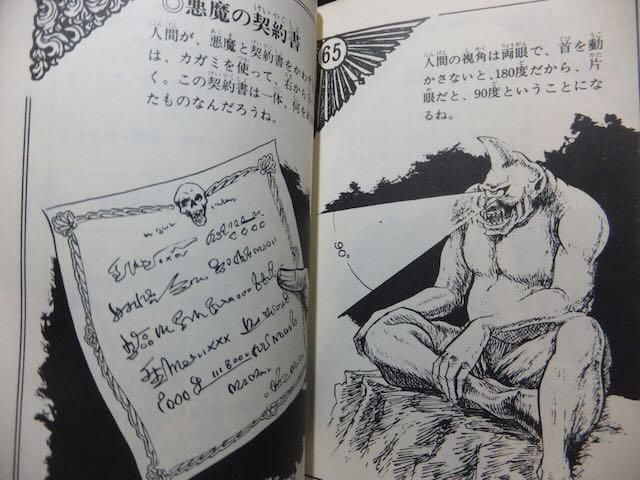 ◎悪魔の契約書
人間が、悪魔と契約書をかわ
は、カガミを使って、右から
く。この契約書は一体、何を
たものなんだろうね。
65
人間の視角は両眼で、首を動
かさないと、180度だから、片
眼だと、90度ということにな
るね。
90°